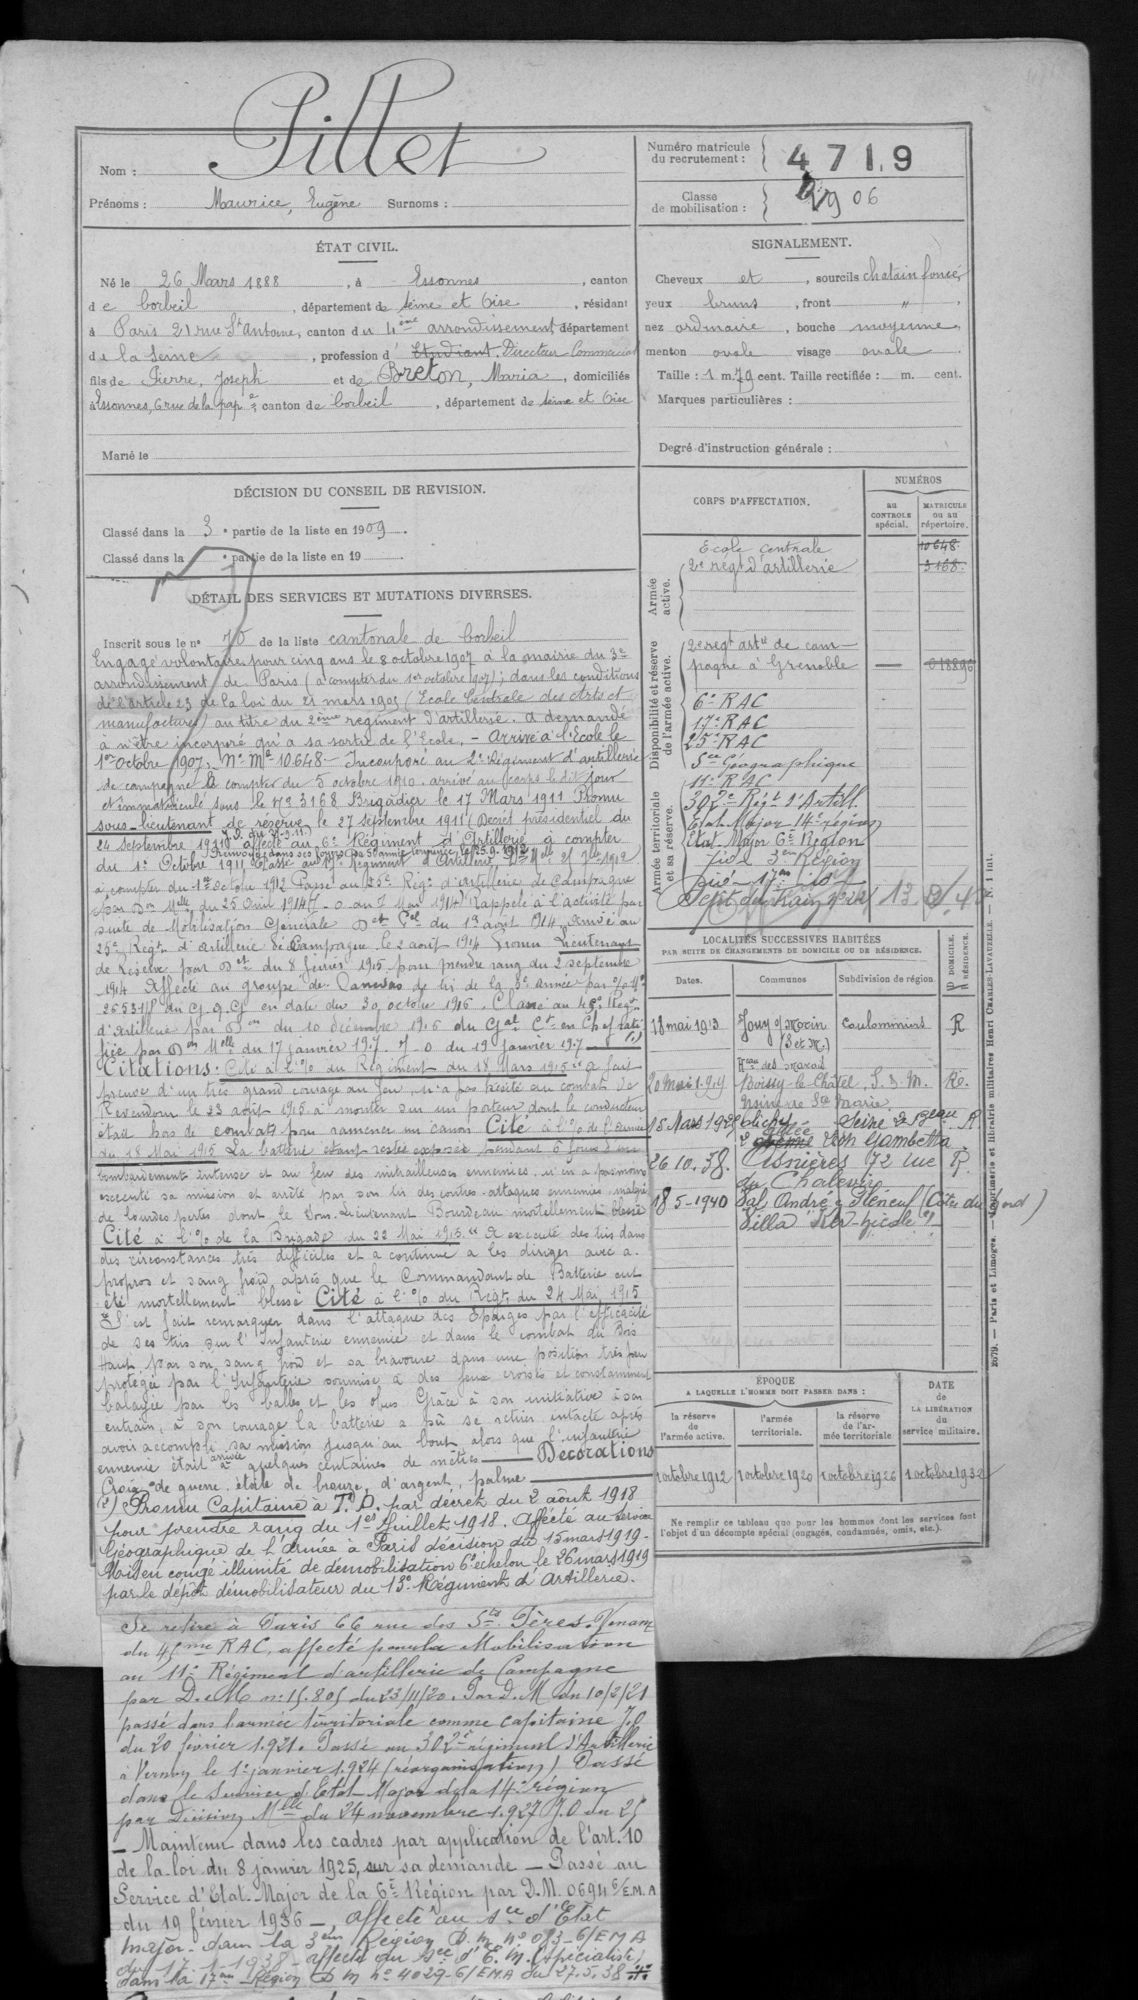 Nom : Pillet
Prénoms : Maurice, Eugène Surnoms :
Numéro matricule du recrutement : 4719
Classe de mobilisation : 1906
ÉTAT CIVIL.
Né le 26 Mars 1888, à Essonnes, canton
de Corbeil, département de Seine et Oise, résidant
à Paris 21 rue St Antoine, canton du 4ème arrondissement département
de la Seine, profession d' Etudiant. Directeur Commercial
fils de Pierre, Joseph et de Breton, Maria, domiciliés
à Essonnes, 6 rue de la pap, canton de Corbeil, département de Seine et Oise
Marié le
SIGNALEMENT.
Cheveux et, sourcils chatain foncé,
yeux bruns, front ",
nez ordinaire, bouche moyenne,
menton ovale visage ovale.
Taille : 1 m. 79 cent. Taille rectifiée : m. cent.
Marques particulières :
Degré d'instruction générale :
DÉCISION DU CONSEIL DE REVISION.
Classé dans la 3e partie de la liste en 1909.
Classé dans la e partie de la liste en 19
DÉTAIL DES SERVICES ET MUTATIONS DIVERSES.
Inscrit sous le n° 70 de la liste cantonale de Corbeil
Engagé volontaire pour cinq ans le 8 octobre 1907 à la mairie du 3e
arrondissement de Paris (à compter du 1er octobre 1907); dans les conditions
de l'article 23 de la loi du 21 mars 1905 (Ecole Centrale des Arts et
manufactures) au titre du 2ème régiment d'artillerie. a demandé
à n'être incorporé qu'à sa sortie de l'Ecole. - Arrivé à l'Ecole le
1er octobre 1907. N° Mle 10.648 - Incorporé au 2e Régiment d'artillerie
de campagne à compter du 5 octobre 1910. arrivé au corps le dit jour
et immatriculé sous le n° 3168 Brigadier le 17 Mars 1911 Promu
sous-lieutenant de réserve le 27 septembre 1911 (Décret présidentiel du
24 Septembre 1911 J.O. du 27-9-11) affecté au 6e Régiment d'Artillerie à compter
du 1er Octobre 1911
Passé au 17e Régiment d'Artillerie Don Mlle 25 Jlet 1912
à compter du 1er Octobre 1912 Passé au 25e Régt d'artillerie de Campagne
par Don Mlle du 25 Avril 1914 (J.O du 7 Mai 1914) Rappelé à l'activité par
suite de Mobilisation Générale Det Pel du 1er août 1914, arrivé au
25e Régt d'Artillerie de Campagne le 2 août 1914 Promu Lieutenant
de Réserve pour Det du 8 février 1915 pour prendre rang du 2 septembre
1914 Affecté au groupe de Canevas de tir de la 3e Année par
26531/8 du G.Q.G en date du 30 octobre 1916. Classé au 45e Régt
d'artillerie par Don du 10 décembre 1916 du Gal Ct en Chef rati
fiée par Don Mlle du 17 janvier 1917. J.O du 19 janvier 1917
Citations: Cité à l'% du Régiment du 18 Mars 1915 "a fait
preuve d'un très grand courage au feu, n'a pas hésité au combat de
le 23 août 1915 à monter sur un porteur dont le conducteur
était hors de combat pour ramener un canon Cité à l'% de l'armée
du 18 Mai 1915 La batterie étant restée exposée pendant 6 jours à un
bombardement intense et au feu des mitrailleuses ennemies, n'en a pas moins
exécuté sa mission et arrêté par son tir des contre-attaques ennemies, malgré
de lourdes pertes dont le Sous-Lieutenant Bourdeau mortellement blessé
Cité à l'% de la Brigade du 22 Mai 1915 "A exécuté des tirs dans
des circonstances très difficiles et a continué à les diriger avec à
propos et sang froid après que le Commandant de Batterie eut
été mortellement blessé Cité à l'% du Régt du 24 Mai 1915
"S'est fait remarquer dans l'attaque des Eparges par l'efficacité
de ses tirs sur l'Infanterie ennemie et dans le combat du Bois
Haut, par son sang froid et sa bravoure dans une position très peu
protégée par l'Infanterie soumise à des feux croisés et constamment
balayée par les balles et les obus Grâce à son initiative à son
entrain, à son courage la batterie a pû se retirer intacte après
avoir accompli sa mission jusqu'au bout, alors que l'infanterie
ennemie était arrivée à quelques centaines de mètres - Décorations
Croix de guerre étoile de bronze, d'argent, palme
Promu Capitaine à T.D. par décret du 2 août 1918
pour prendre rang du 1er Juillet 1918. Affecté au Service
Géographique de l'Armée à Paris décision du 15 mars 1919-
Mis en congé illimité de démobilisation 6e échelon le 26 mars 1919
par le dépôt démobilisateur du 13e Régiment d'artillerie.
Se retire à Paris 66 rue des Sts Pères. Venant
du 45me RAC, affecté pour la Mobilisation
au 11e Régiment d'artillerie de Campagne
par D. M n° 15.805 du 23/11/20. Par D.M du 10/2/21
passé dans l'armée territoriale comme capitaine J.O
du 20 février 1.921. Passé au 302e régiment d'Artillerie
à Vernon le 1er janvier 1.924 (réorganisation) Passé
dans le Service d'Etat-Major de la 14e région
par Décision Mlle du 24 novembre 1.927 J.O du 25
- Maintenu dans les cadres par application de l'art. 10
de la loi du 8 janvier 1925, sur sa demande - Passé au
Service d'Etat-Major de la 6e Région par D.M. 0694 6/E.M.A
du 19 février 1936 -, affecté au sce d'Etat
major dans la 3em Région D.M n° 083-6/EMA
du 17-1-1938 - affecté au sce d'E.M. (Spécialiste)
dans la 17me Région D M n° 4029-6/EMA du 27.5.38
CORPS D'AFFECTATION.
NUMÉROS
au CONTROLE spécial.
MATRICULE ou au répertoire.
Armée active.
Ecole centrale 10648
2e régt d'artillerie 3168
Disponibilité et réserve de l'armée active.
2e régt artie de cam-
pagne à Grenoble
6e RAC
17e RAC
25e RAC
Sce Géographique
Armée territoriale et sa réserve.
11e RAC
302e Régt d'Artill.
Etat Major 14e région
Etat Major 6e Région
3em Région
LOCALITÉS SUCCESSIVES HABITÉES
PAR SUITE DE CHANGEMENTS DE DOMICILE OU DE RÉSIDENCE.
Dates. Communes Subdivision de région. D DOMICILE. R RÉSIDENCE.
18 mai 1913 Jouy s/ Morin (S et M.) Coulommiers R
20 mai 1919 Hau des Marais Boissy-le-Châtel, S. & M. Usine de Ste Marie Re.
15 Mars 1928 Clichy Seine 2e Beau R
2 allée Léon Gambetta
26.10.38. Asnières 72 rue R.
18-5-1940 Val André à Pléneuf (Côtes du Nord)
Villa
ÉPOQUE
A LAQUELLE L'HOMME DOIT PASSER DANS :
la réserve de l'armée active. l'armée territoriale. la réserve de l'armée territoriale
DATE DE LA LIBÉRATION du service militaire.
1 octobre 1912 1 octobre 1920 1 octobre 1926 1 octobre 1932
Ne remplir ce tableau que pour les hommes dont les services font
l'objet d'un décompte spécial (engagés, condamnés, omis, etc.).
2079. — Paris et Limoges. — Imprimerie et librairie militaires Henri CHARLES-LAVAUZELLE. — N. 1 int.